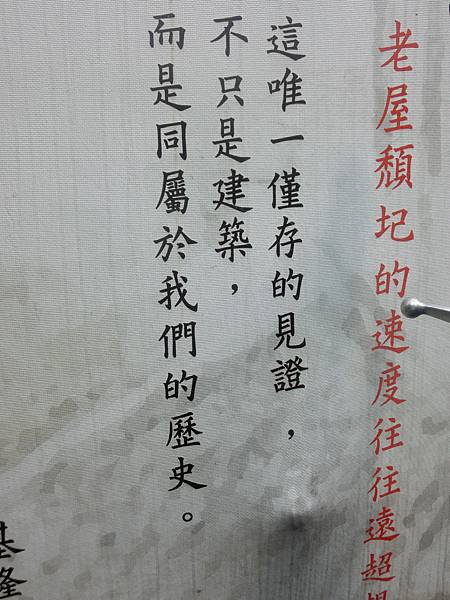 老屋頹圮的速度往往遠超
這唯一僅存的見證，
不只是建築，
而是同屬於我們的歷史。
基隆